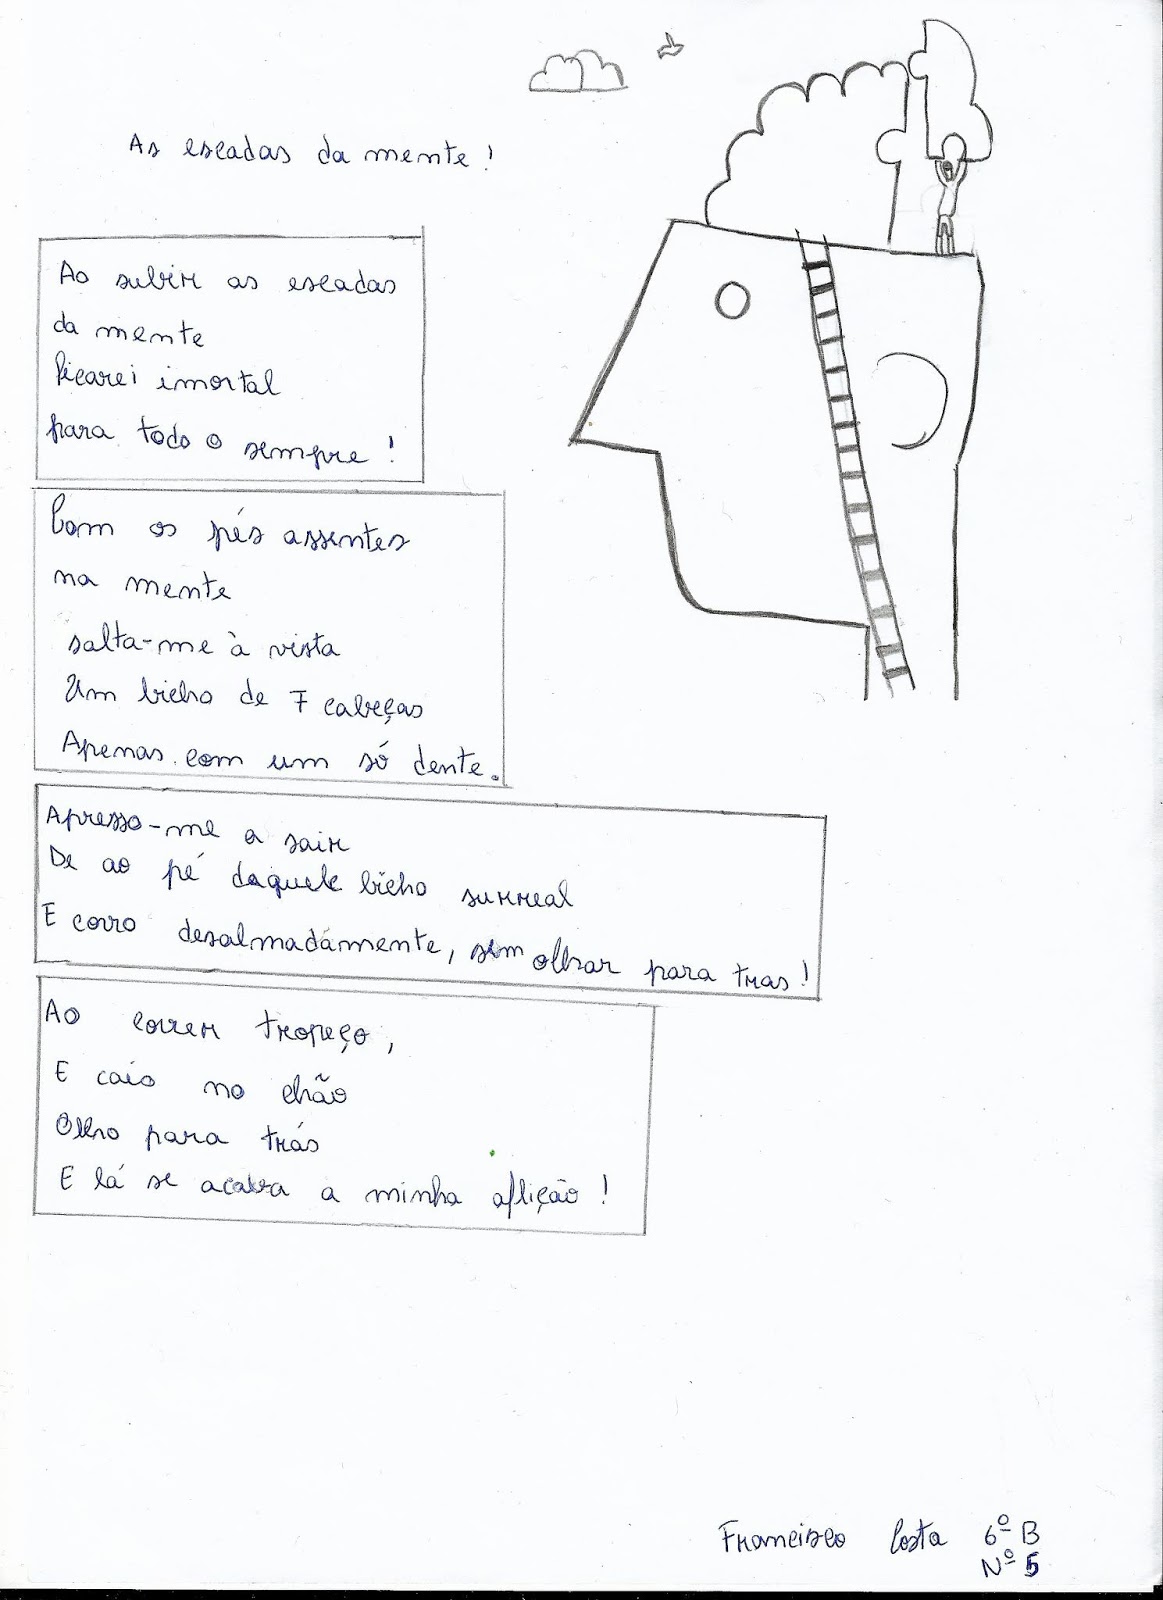 As escadas da mente!
Ao subir as escadas
da mente
Ficarei imortal
para todo o sempre!
Com os pés assentes
na mente
salta-me à vista
Um bicho de 7 cabeças
Apenas com um só dente.
Apresso-me a sair
De ao pé daquele bicho surreal
E corro desalmadamente, sem olhar para tras!
Ao correr tropeço,
E caio no chão
Olho para trás
E lá se acaba a minha aflição!
Francisco Costa 6º B
Nº 5